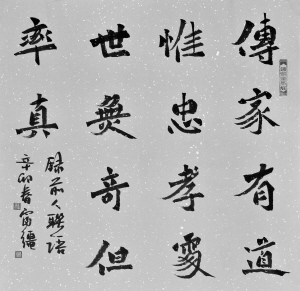 傳家有道
惟忠孝處
世無奇但
率真
錄前人聯語
辛卯春雷疆